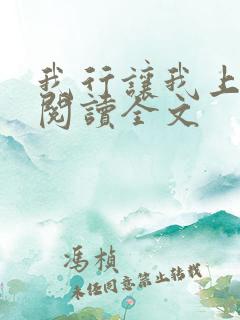 我行讓我上
閱讀全文
馮楨
未经同意禁止转载